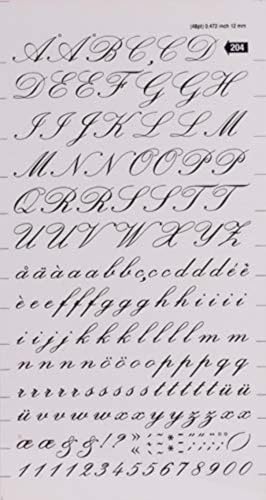 (48pt) 0.472 inch 12 mm
204
Å Ä B C Ç D
D E E F G G H
I I J K L L M
M N N O O P P
Q R R S S T T
U U V W X Y Z
å ä a a b b c ç c d d d d é è
è e e f f f g g g h h i i i i
i i i j j k k k l l l l l m m
n n n n n ö ö o o p p p q q
r r r r r s s s s s t t t t t ü ü
ü v v w w x x x y y y z z z
æ æ & & ! ?
1 1 1 2 3 4 5 5 6 7 8 9 0 0